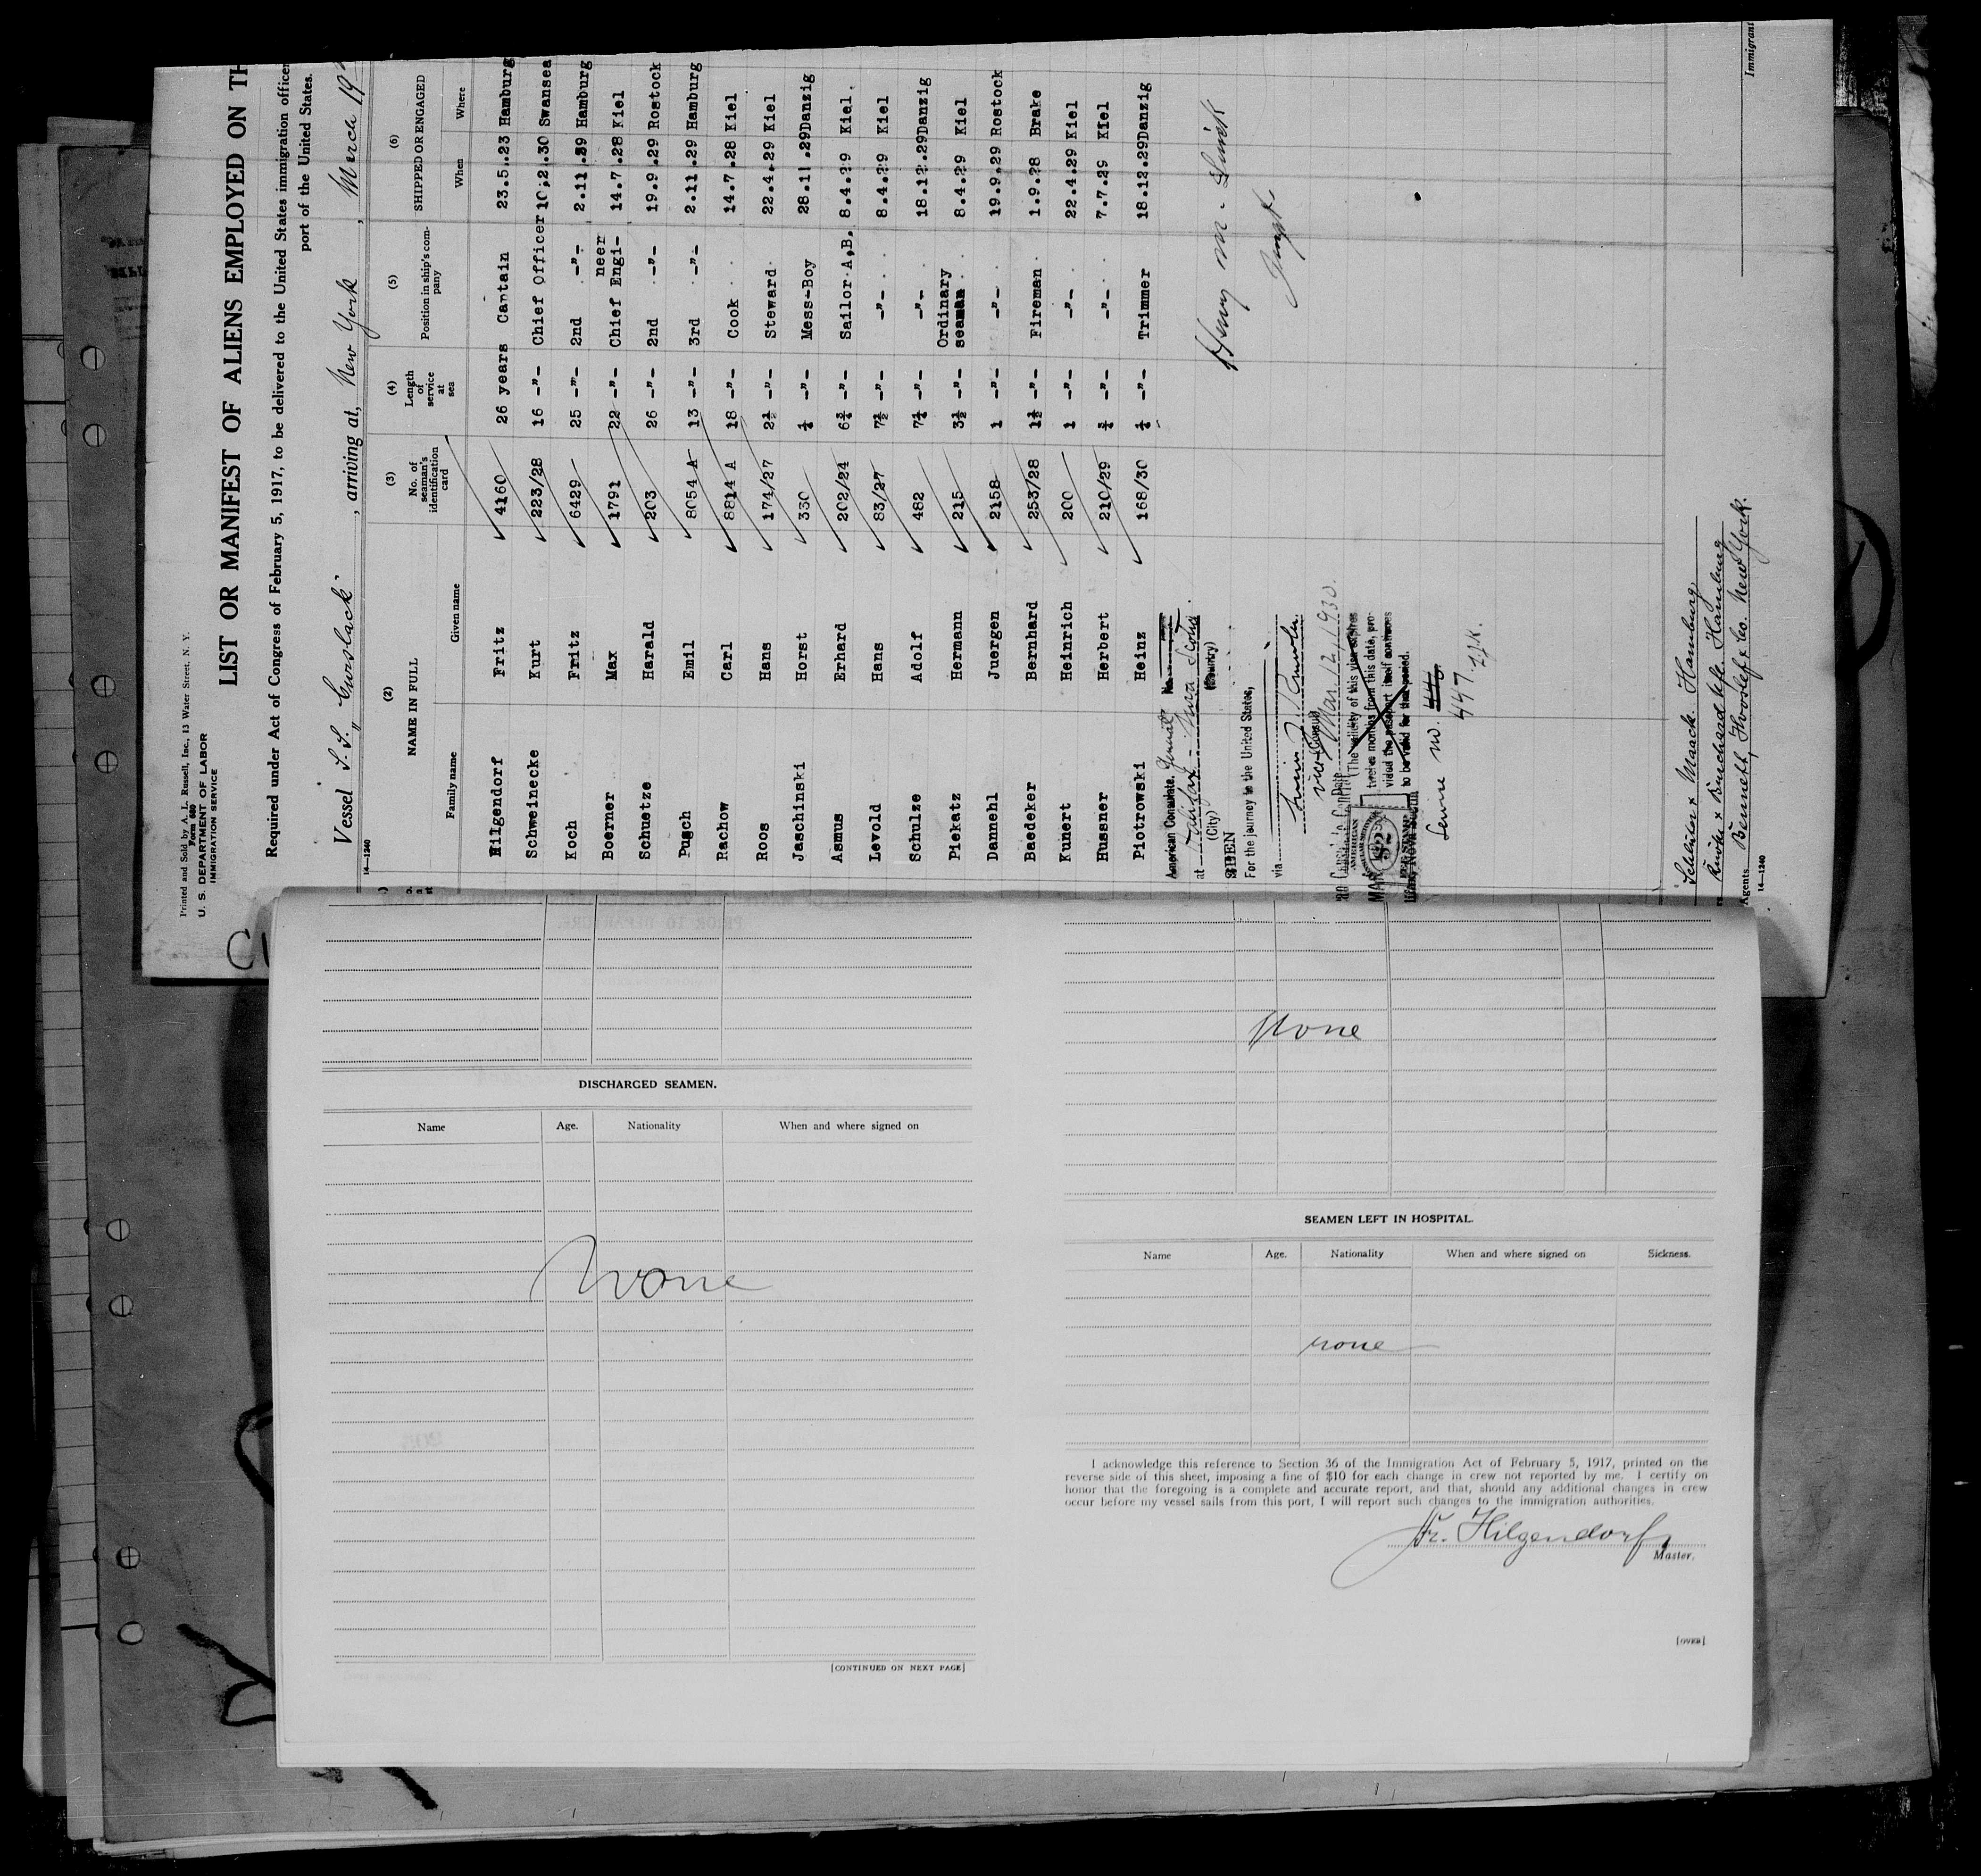 Printed and Sold by A. L. Russell, Inc., 13 Water Street, N. Y.
Form 680
U. S. DEPARTMENT OF LABOR
IMMIGRATION SERVICE
LIST OR MANIFEST OF ALIENS EMPLOYED ON TH
Required under Act of Congress of February 5, 1917, to be delivered to the United States immigration officer
port of the United States.
Vessel S. S. „Curslack", arriving at, New York, March 19
14—1240
(2) (3) (4) (5) (6)
NAME IN FULL No. of seaman's identification card Length of service at sea Position in ship's company SHIPPED OR ENGAGED
Family name Given name When Where
Hilgendorf Fritz 4160 26 years Captain 23.5.23 Hamburg
Schweinecke Kurt 223/28 16 -"- Chief Officer 10.2.30 Swansea
Koch Fritz 6429 25 -"- 2nd -"- 2.11.29 Hamburg
Boerner Max 1791 22 -"- Chief Engi-neer 14.7.28 Kiel
Schuetze Harald 203 26 -"- 2nd -"- 19.9.29 Rostock
Pusch Emil 8054 A 13 -"- 3rd -"- 2.11.29 Hamburg
Rachow Carl 8814 A 18 -"- Cook 14.7.28 Kiel
Roos Hans 174/27 2½ -"- Steward 22.4.29 Kiel
Jaschinski Horst 330 -"- Mess-Boy 28.11.29 Danzig
Asmus Erhard 202/24 6¾ -"- Sailor A.B. 8.4.29 Kiel
Levold Hans 83/27 7½ -"- -"- 8.4.29 Kiel
Schulze Adolf 482 -"- -"- 18.12.29 Danzig
Piekatz Hermann 215 3½ -"- Ordinary seaman 8.4.29 Kiel
Dannehl Juergen 2158 1 -"- -"- 19.9.29 Rostock
Baedeker Bernhard 253/28 1½ -"- Fireman 1.9.28 Brake
Kunert Heinrich 200 1 -"- -"- 22.4.29 Kiel
Hussner Herbert 210/29 -"- -"- 7.7.29 Kiel
Piotrowski Heinz 168/30 -"- Trimmer 18.12.29 Danzig
American Consulate General No.
at Halifax - Nova Scotia
(City) (Country)
SEEN
For the journey to the United States,
via
Vice Consul
Mar. 12, 1930.
(The validity of this visa expires
twelve months from this date, pro-
vided the passport itself continues
to be valid for that period.
Service no.
447
Henry M.
Insp
Schlüter & Maack. Hamburg
Knöhr & Burchard Nfl. Hamburg
Agents Bennett, Hvoslef & Co. New York.
14—1240
Immigrant
DISCHARGED SEAMEN.
Name Age. Nationality When and where signed on
None
[CONTINUED ON NEXT PAGE]
None
SEAMEN LEFT IN HOSPITAL.
Name Age. Nationality When and where signed on Sickness.
none
I acknowledge this reference to Section 36 of the Immigration Act of February 5, 1917, printed on the
reverse side of this sheet, imposing a fine of $10 for each change in crew not reported by me. I certify on
honor that the foregoing is a complete and accurate report, and that, should any additional changes in crew
occur before my vessel sails from this port, I will report such changes to the immigration authorities.
Fr. Hilgendorf,
Master.
[OVER]